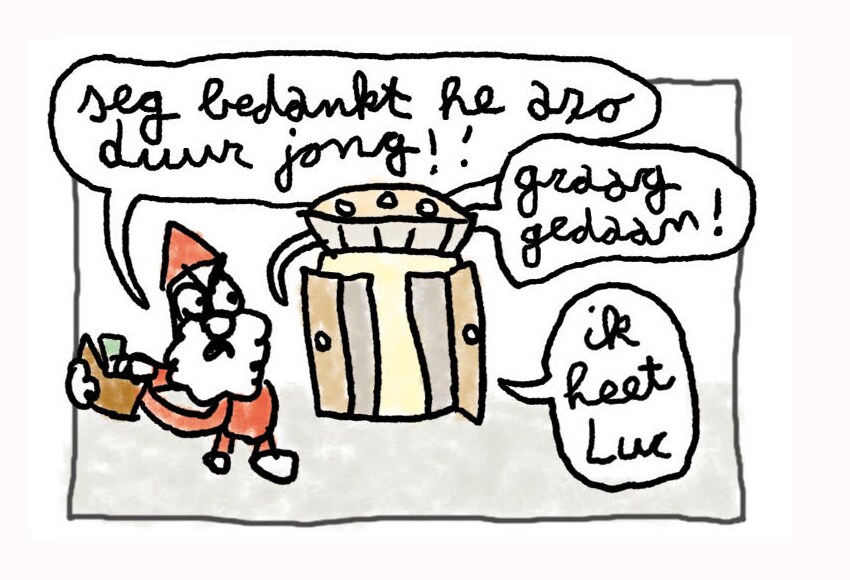 seg bedankt he azo
duur jong!!
graag
gedaan!
ik
heet
Luc